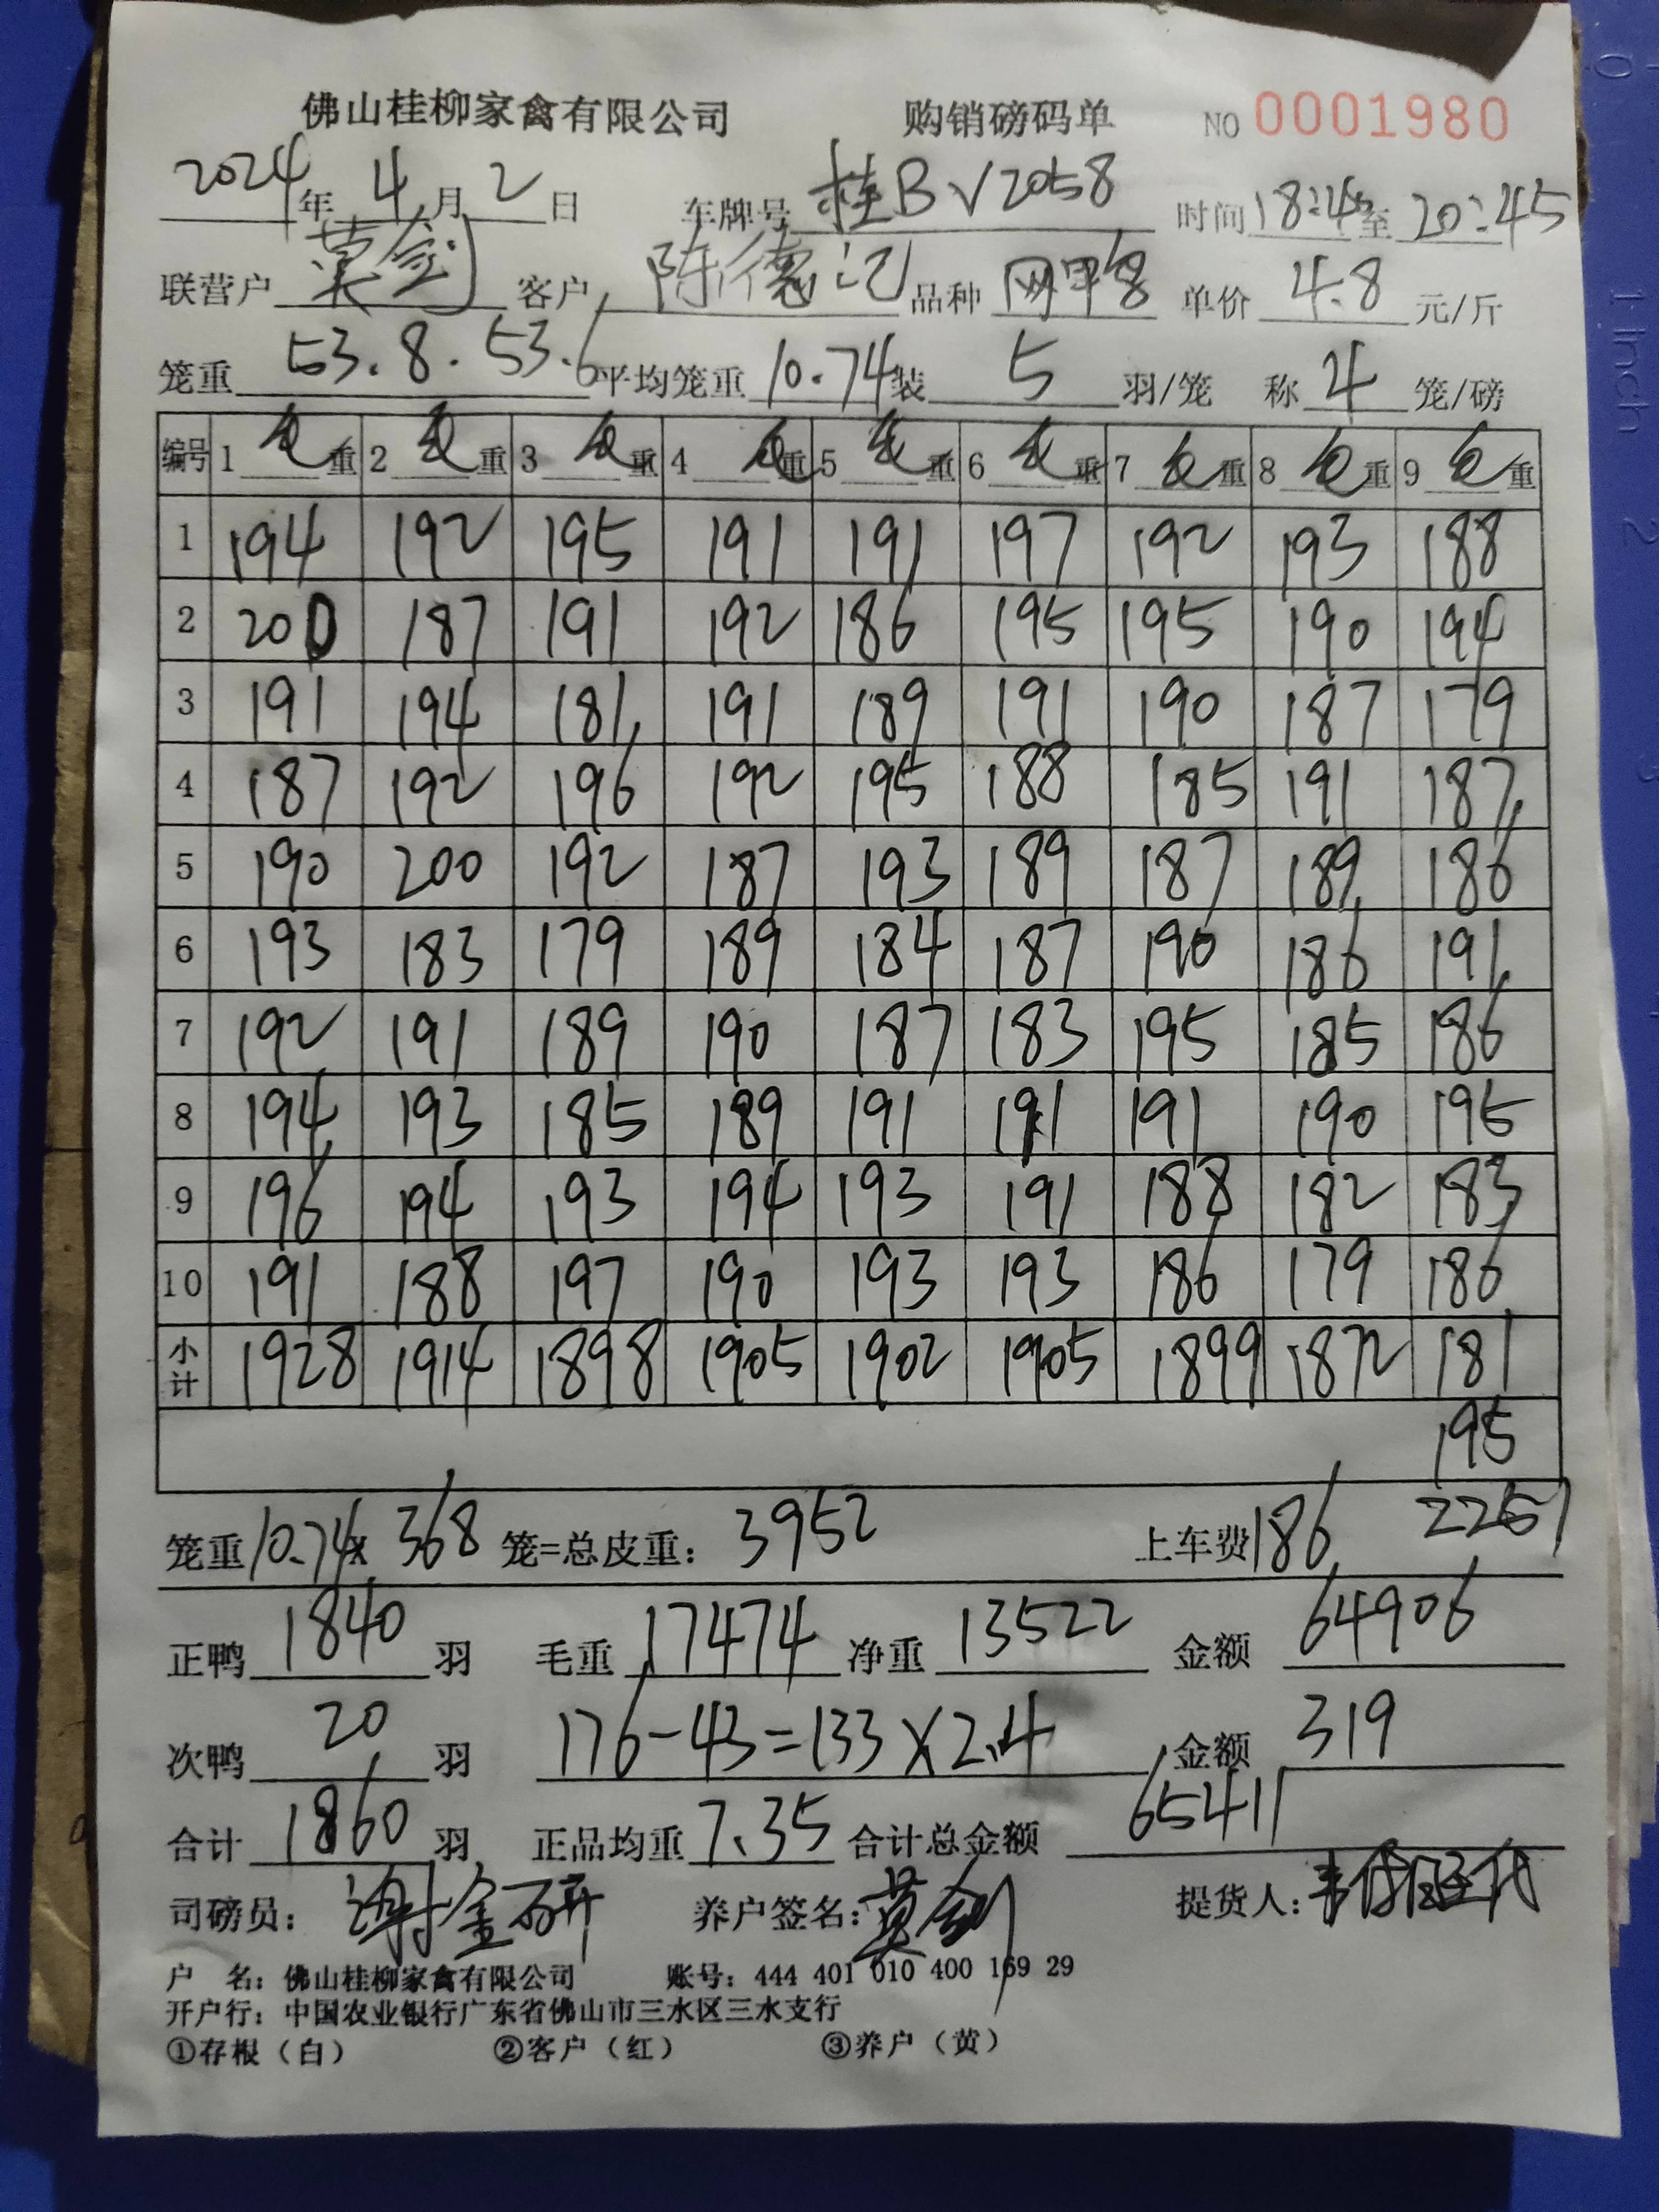 佛山桂柳家禽有限公司 购销磅码单 NO 0001980
2024年4月2日 车牌号 桂BV2058 时间18:45至20:45
联营户 莫剑 客户 陈德记 品种 网甲 单价 4.8 元/斤
笼重 53.8.53.6 平均笼重 10.74 装 5 羽/笼 称 4 笼/磅
编号 1 重 2 重 3 重 4 重 5 重 6 重 7 重 8 重 9 重
1 194 192 195 191 191 197 192 193 188
2 200 187 191 192 186 195 195 190 194
3 191 194 181 191 189 191 190 187 179
4 187 192 196 192 195 188 185 191 187
5 190 200 192 187 193 189 187 189 186
6 193 183 179 189 184 187 190 186 191
7 192 191 189 190 187 183 195 185 186
8 194 193 185 189 191 191 191 190 195
9 196 194 193 194 193 191 188 182 183
10 191 188 197 190 193 193 186 179 186
小计 1928 1914 1898 1905 1902 1905 1899 1872 181
195
笼重 10.74 x 368 笼=总皮重: 3952 上车费 186 2251
正鸭 1840 羽 毛重 17474 净重 13522 金额 64906
次鸭 20 羽 176-43=133×2.4 金额 319
合计 1860 羽 正品均重 7.35 合计总金额 65411
司磅员: 谢金研 养户签名: 莫剑 提货人:
户 名: 佛山桂柳家禽有限公司 账号: 444 401 010 400 169 29
开户行: 中国农业银行广东省佛山市三水区三水支行
①存根（白） ②客户（红） ③养户（黄）
1 Inch 2 3